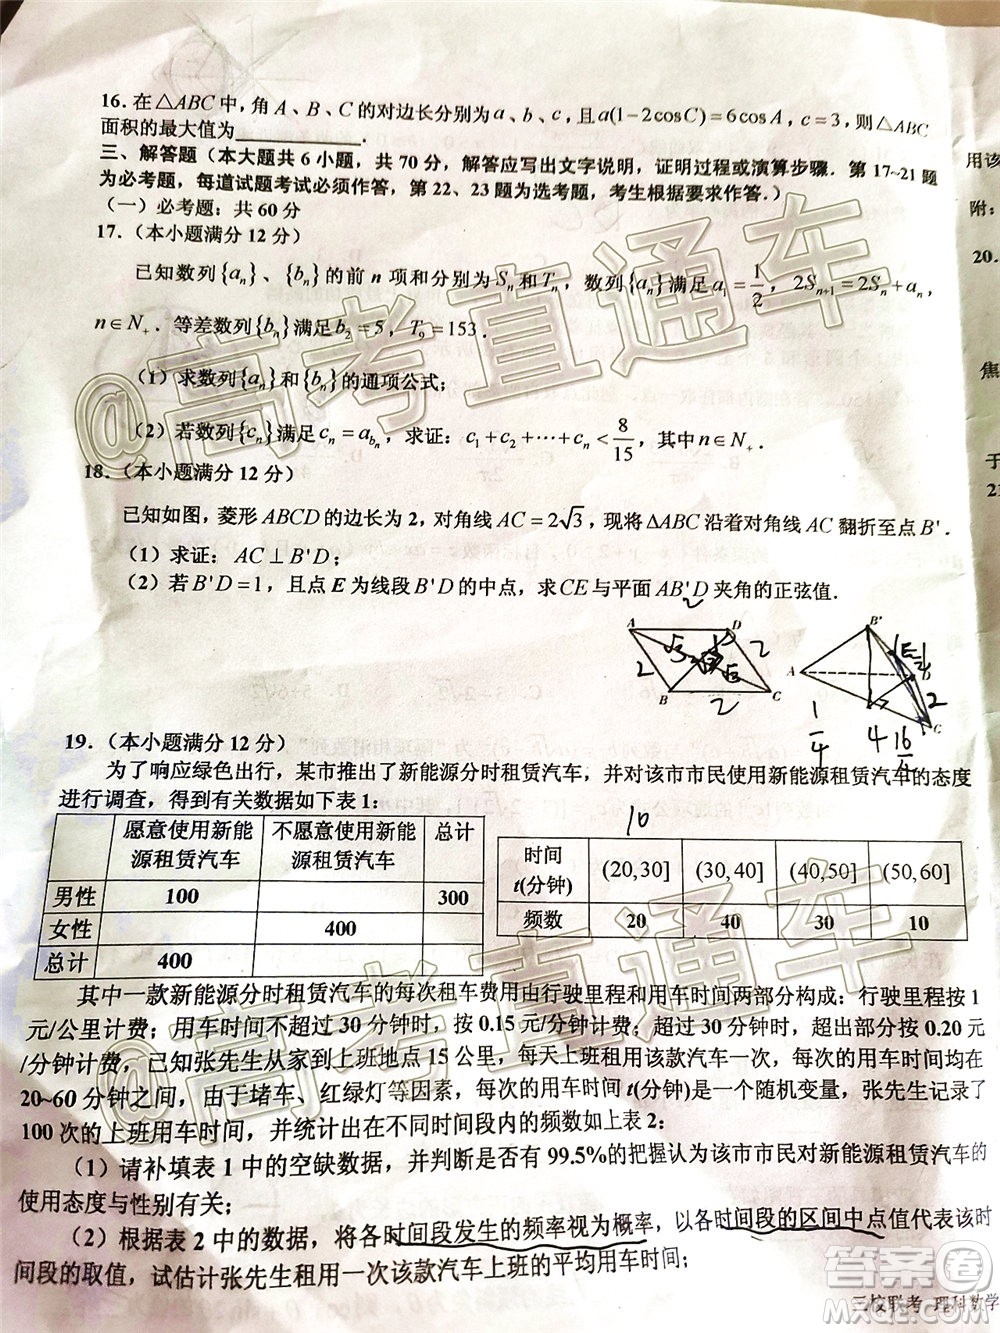 16.在△ABC中，角A、B、C的对边长分别为a、b、c，且a(1-2cosC)=6cosA，c=3，则△ABC
面积的最大值为____________.
三、解答题（本大题共6小题，共70分，解答应写出文字说明，证明过程或演算步骤．第17~21题
为必考题，每道试题考试必须作答，第22、23题为选考题，考生根据要求作答.）
（一）必考题：共60分
17.（本小题满分12分）
已知数列{aₙ}、{bₙ}的前n项和分别为Sₙ和Tₙ，数列{aₙ}满足a₁=1/2，2Sₙ₊₁=2Sₙ+aₙ，
n∈N₊．等差数列{bₙ}满足b₂=5，T₉=153．
（1）求数列{aₙ}和{bₙ}的通项公式；
（2）若数列{cₙ}满足cₙ=a_{bₙ}，求证：c₁+c₂+⋯+cₙ<8/15，其中n∈N₊．
18.（本小题满分12分）
已知如图，菱形ABCD的边长为2，对角线AC=2√3，现将ΔABC沿着对角线AC翻折至点B'．
（1）求证：AC⊥B'D；
（2）若B'D=1，且点E为线段B'D的中点，求CE与平面AB'D夹角的正弦值．
A D B C
2 √3 1 √3 2 2 2
B' A E D C
1/4 4 2
19.（本小题满分12分）
为了响应绿色出行，某市推出了新能源分时租赁汽车，并对该市市民使用新能源租赁汽车的态度
进行调查，得到有关数据如下表1：
愿意使用新能源租赁汽车 不愿意使用新能源租赁汽车 总计
男性 100 300
女性 400
总计 400
10
时间t(分钟) (20,30] (30,40] (40,50] (50,60]
频数 20 40 30 10
其中一款新能源分时租赁汽车的每次租车费用由行驶里程和用车时间两部分构成：行驶里程按1
元/公里计费；用车时间不超过30分钟时，按0.15元/分钟计费；超过30分钟时，超出部分按0.20元
/分钟计费，已知张先生从家到上班地点15公里，每天上班租用该款汽车一次，每次的用车时间均在
20~60分钟之间，由于堵车、红绿灯等因素，每次的用车时间t(分钟)是一个随机变量，张先生记录了
100次的上班用车时间，并统计出在不同时间段内的频数如上表2：
（1）请补填表1中的空缺数据，并判断是否有99.5%的把握认为该市市民对新能源租赁汽车的
使用态度与性别有关；
（2）根据表2中的数据，将各时间段发生的频率视为概率，以各时间段的区间中点值代表该时
间段的取值，试估计张先生租用一次该款汽车上班的平均用车时间；
三校联考 理科数学
用该
附：
20.
焦
于
21
@高考直通车
@高考直通车
答案圈
MXQE.COM